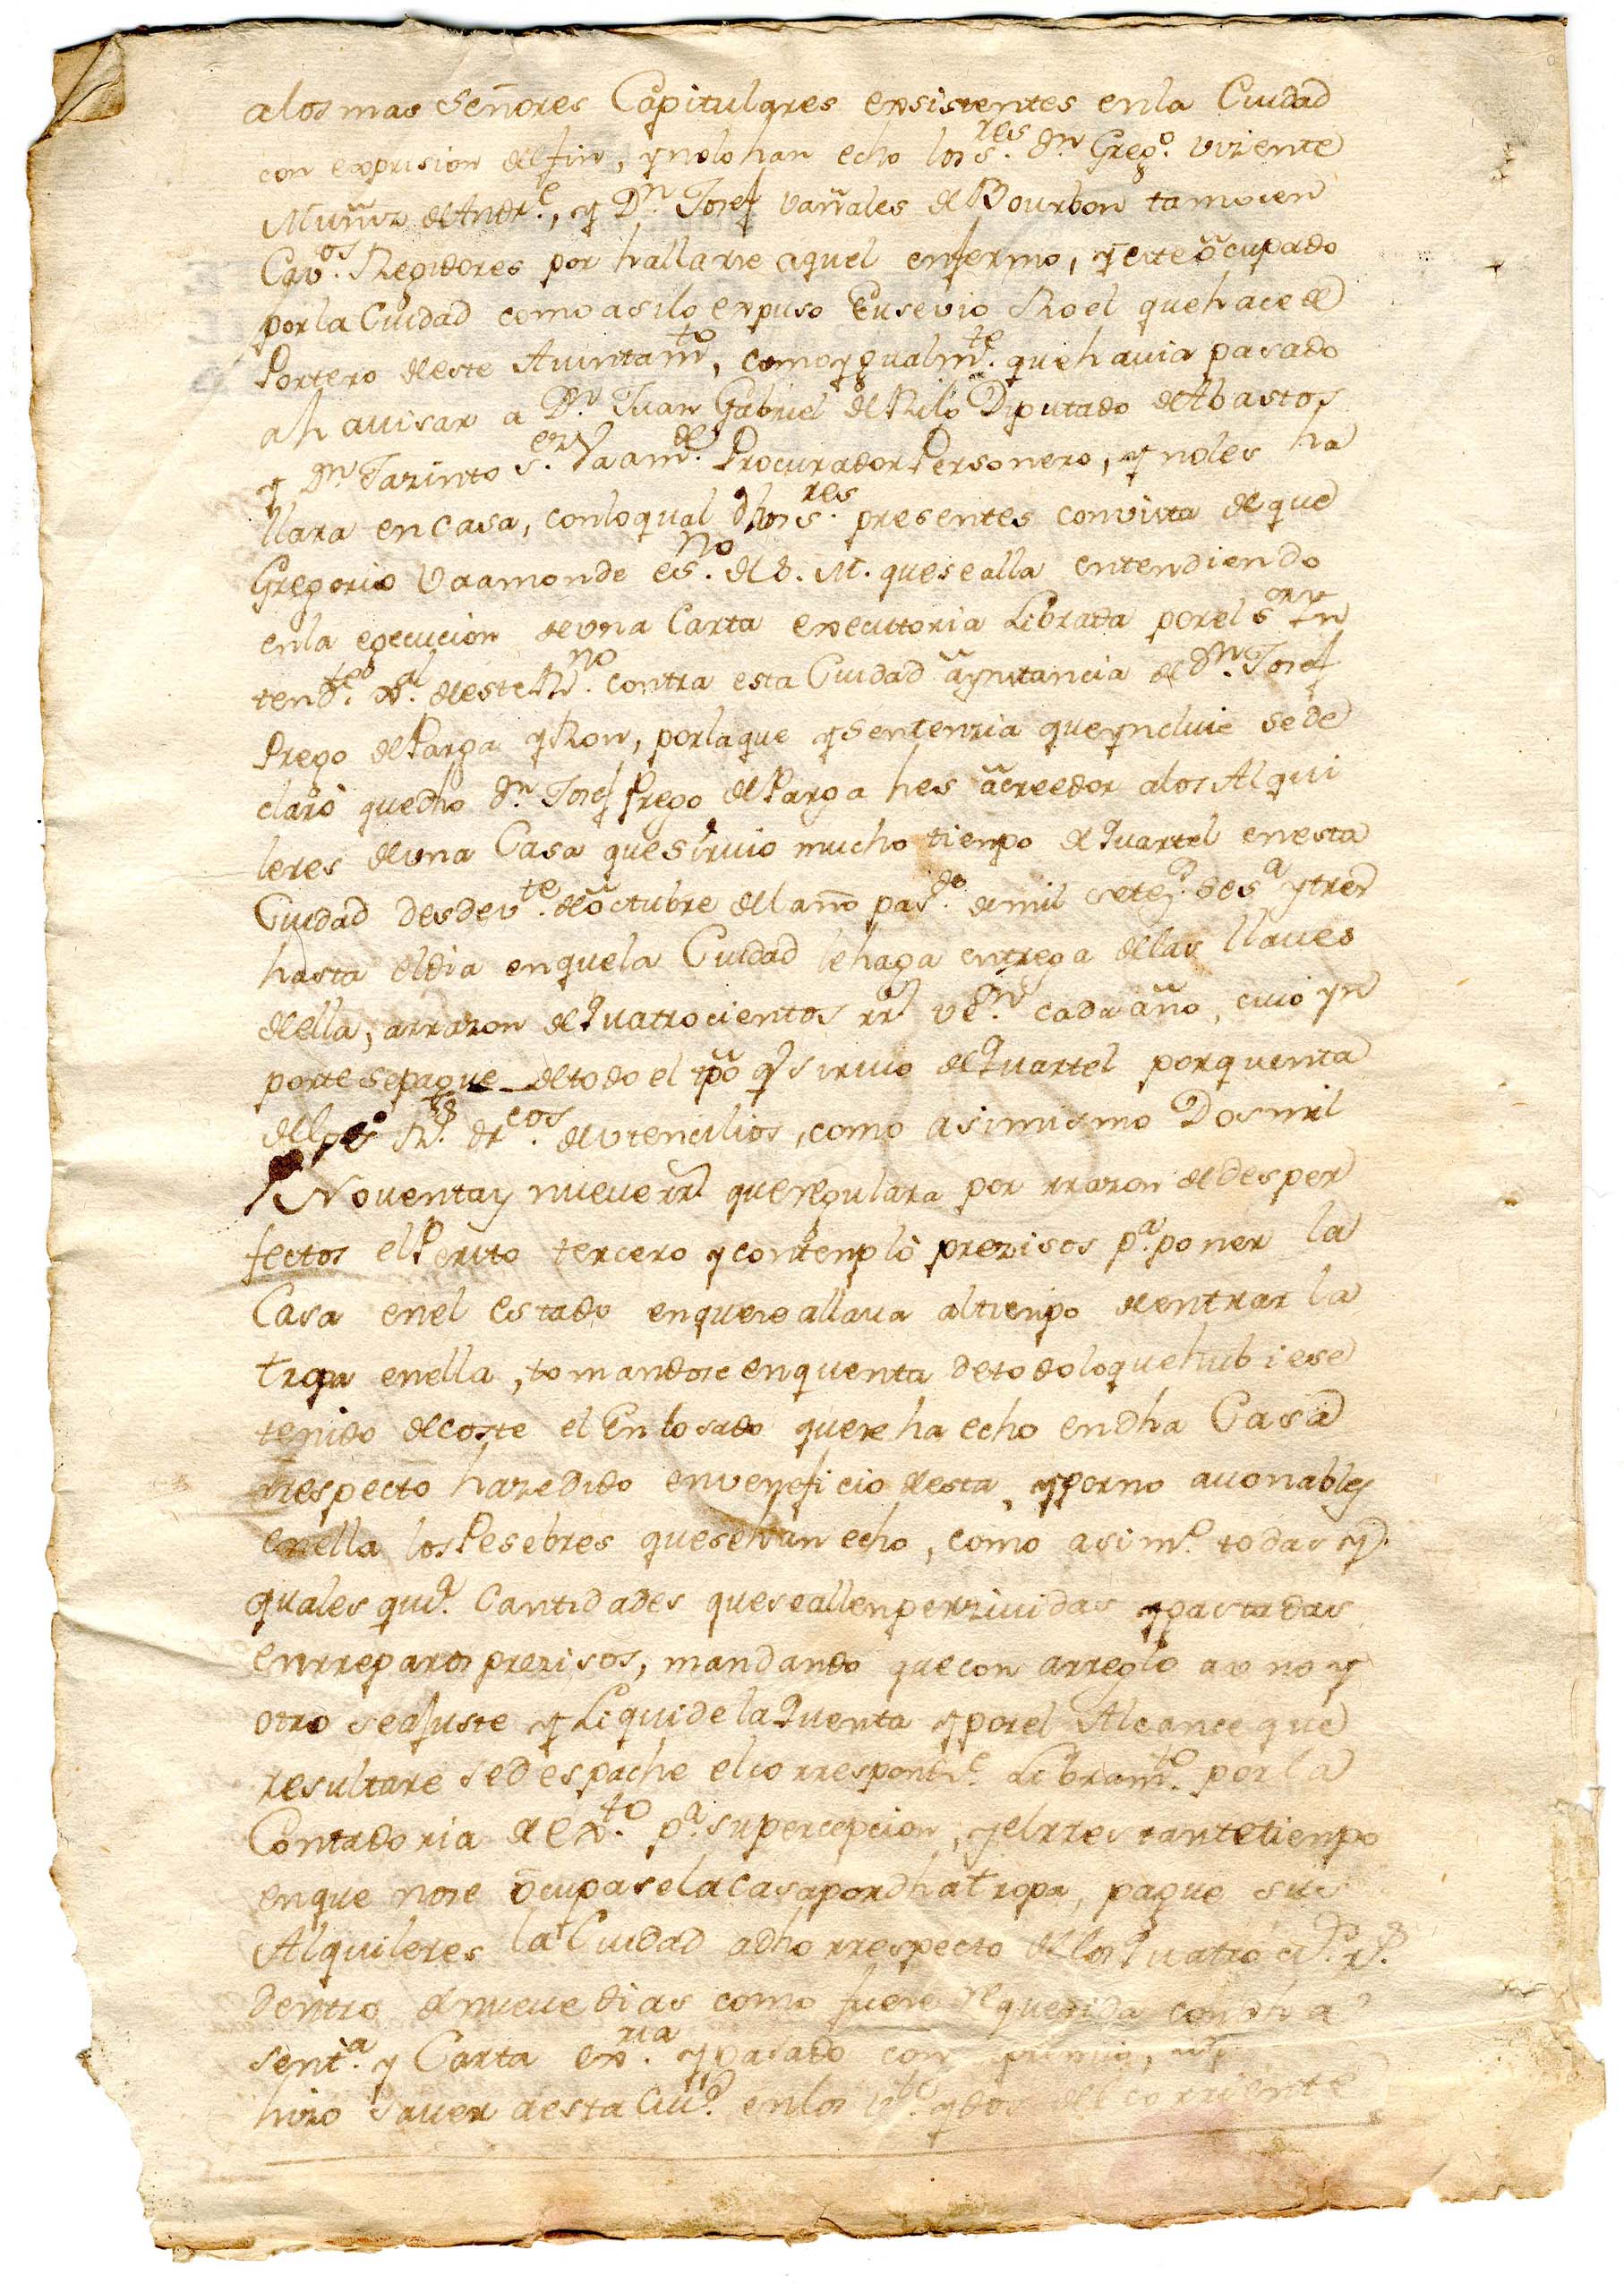 alos mas Señores Capitulares exsistentes enla Ciudad
con exprision del fin, ynolo han echo los S.res Dn Grego. Vizente
Muñoz de Andr.e, y Dn. Josef Vañales de Bourbon tamvien
Cav.os Regidores por hallarse aquel enfermo, y este ocupado
por la Ciudad como asi lo expuso Eusevio Roel que hace de
Portero deeste Aiuntam.to, como ygualm.te que havia pasado
ah avisar a Dn. Juan Gabriel de Rilo Diputado de Abastos
y Dn. Jazinto S.ez Vaam.de Procurador Personero, y noles ha
llara en casa, conloqual dhos S.res presentes convista de que
Gregorio Vaamonde es.no de S. M. que sealla entendiendo
enla egecucion de una Carta executoria Librada por el S.or Yn
tend.te Gl. deeste R.no contra esta Ciudad aynstancia de Dn. Josef
Prego de Parga y Ron, porlaque y Sentenzia que yncluie se de
claró que dho Dn. Josef Prego de Parga hes acreedor alos Alqui
leres de una Casa que sirvio mucho tiempo de Quartel enesta
Ciudad desde v.te de octubre del año pas.do de mil setez.s ses.a y tres
hasta el dia enquela Ciudad le haga entrega delas llaves
de ella, arrazon de Quatrocientos rr.s v.on cada año, cuio yn
porte sepague de todo el tpo q.e sirvio de Quartel por quenta
delos R.s de utencilios, como asimismo Dosmil
Noventay nueve rr.s que regulara por rrazon de desper
fectos el Perito tercero y contempló prezisos p.a poner la
Casa enel estado enquese allava al tiempo de entrar la
tropa enella, tomandose enquenta detodo loque hubiese
tenido de coste el Enlosado quese ha echo en dha Casa
rrespecto hazedido en veneficio desta, y por no avonables
enella los Pesebres quesehan echo, como asi m.o todas y
qualesqui.a Cantidades que seallen perzividas y gastadas
en rreparos prezisos, mandando que con arreglo a uno y
otro seajuste y Liquide la Quenta y porel Alcance que
resultare se despache el correspond.te Libram.to por la
Contadoria de Ex.to p.a su percepcion, y el rrestante tiempo
en que nose ocupase la casa por dha tropa, pague sus
Alquileres la Ciudad a dho rrespecto delos Quatroci.s r.s
dentro de nueve dias como fuere requerida con dha
sent.a y Carta ex.ria y pasado con
hizo saver a esta Ciu.d enlos v.te y dos del corriente